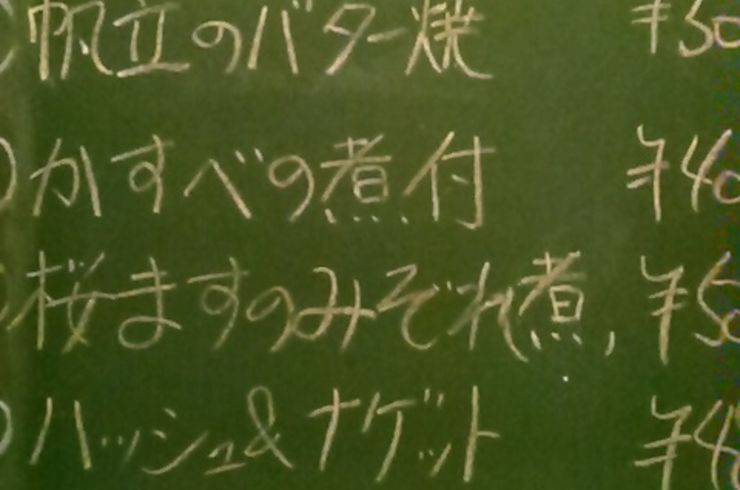 帆立のバター焼 ¥50
かすべの煮付 ¥40
桜ますのみぞれ煮 ¥50
ハッシュ&ナゲット ¥4